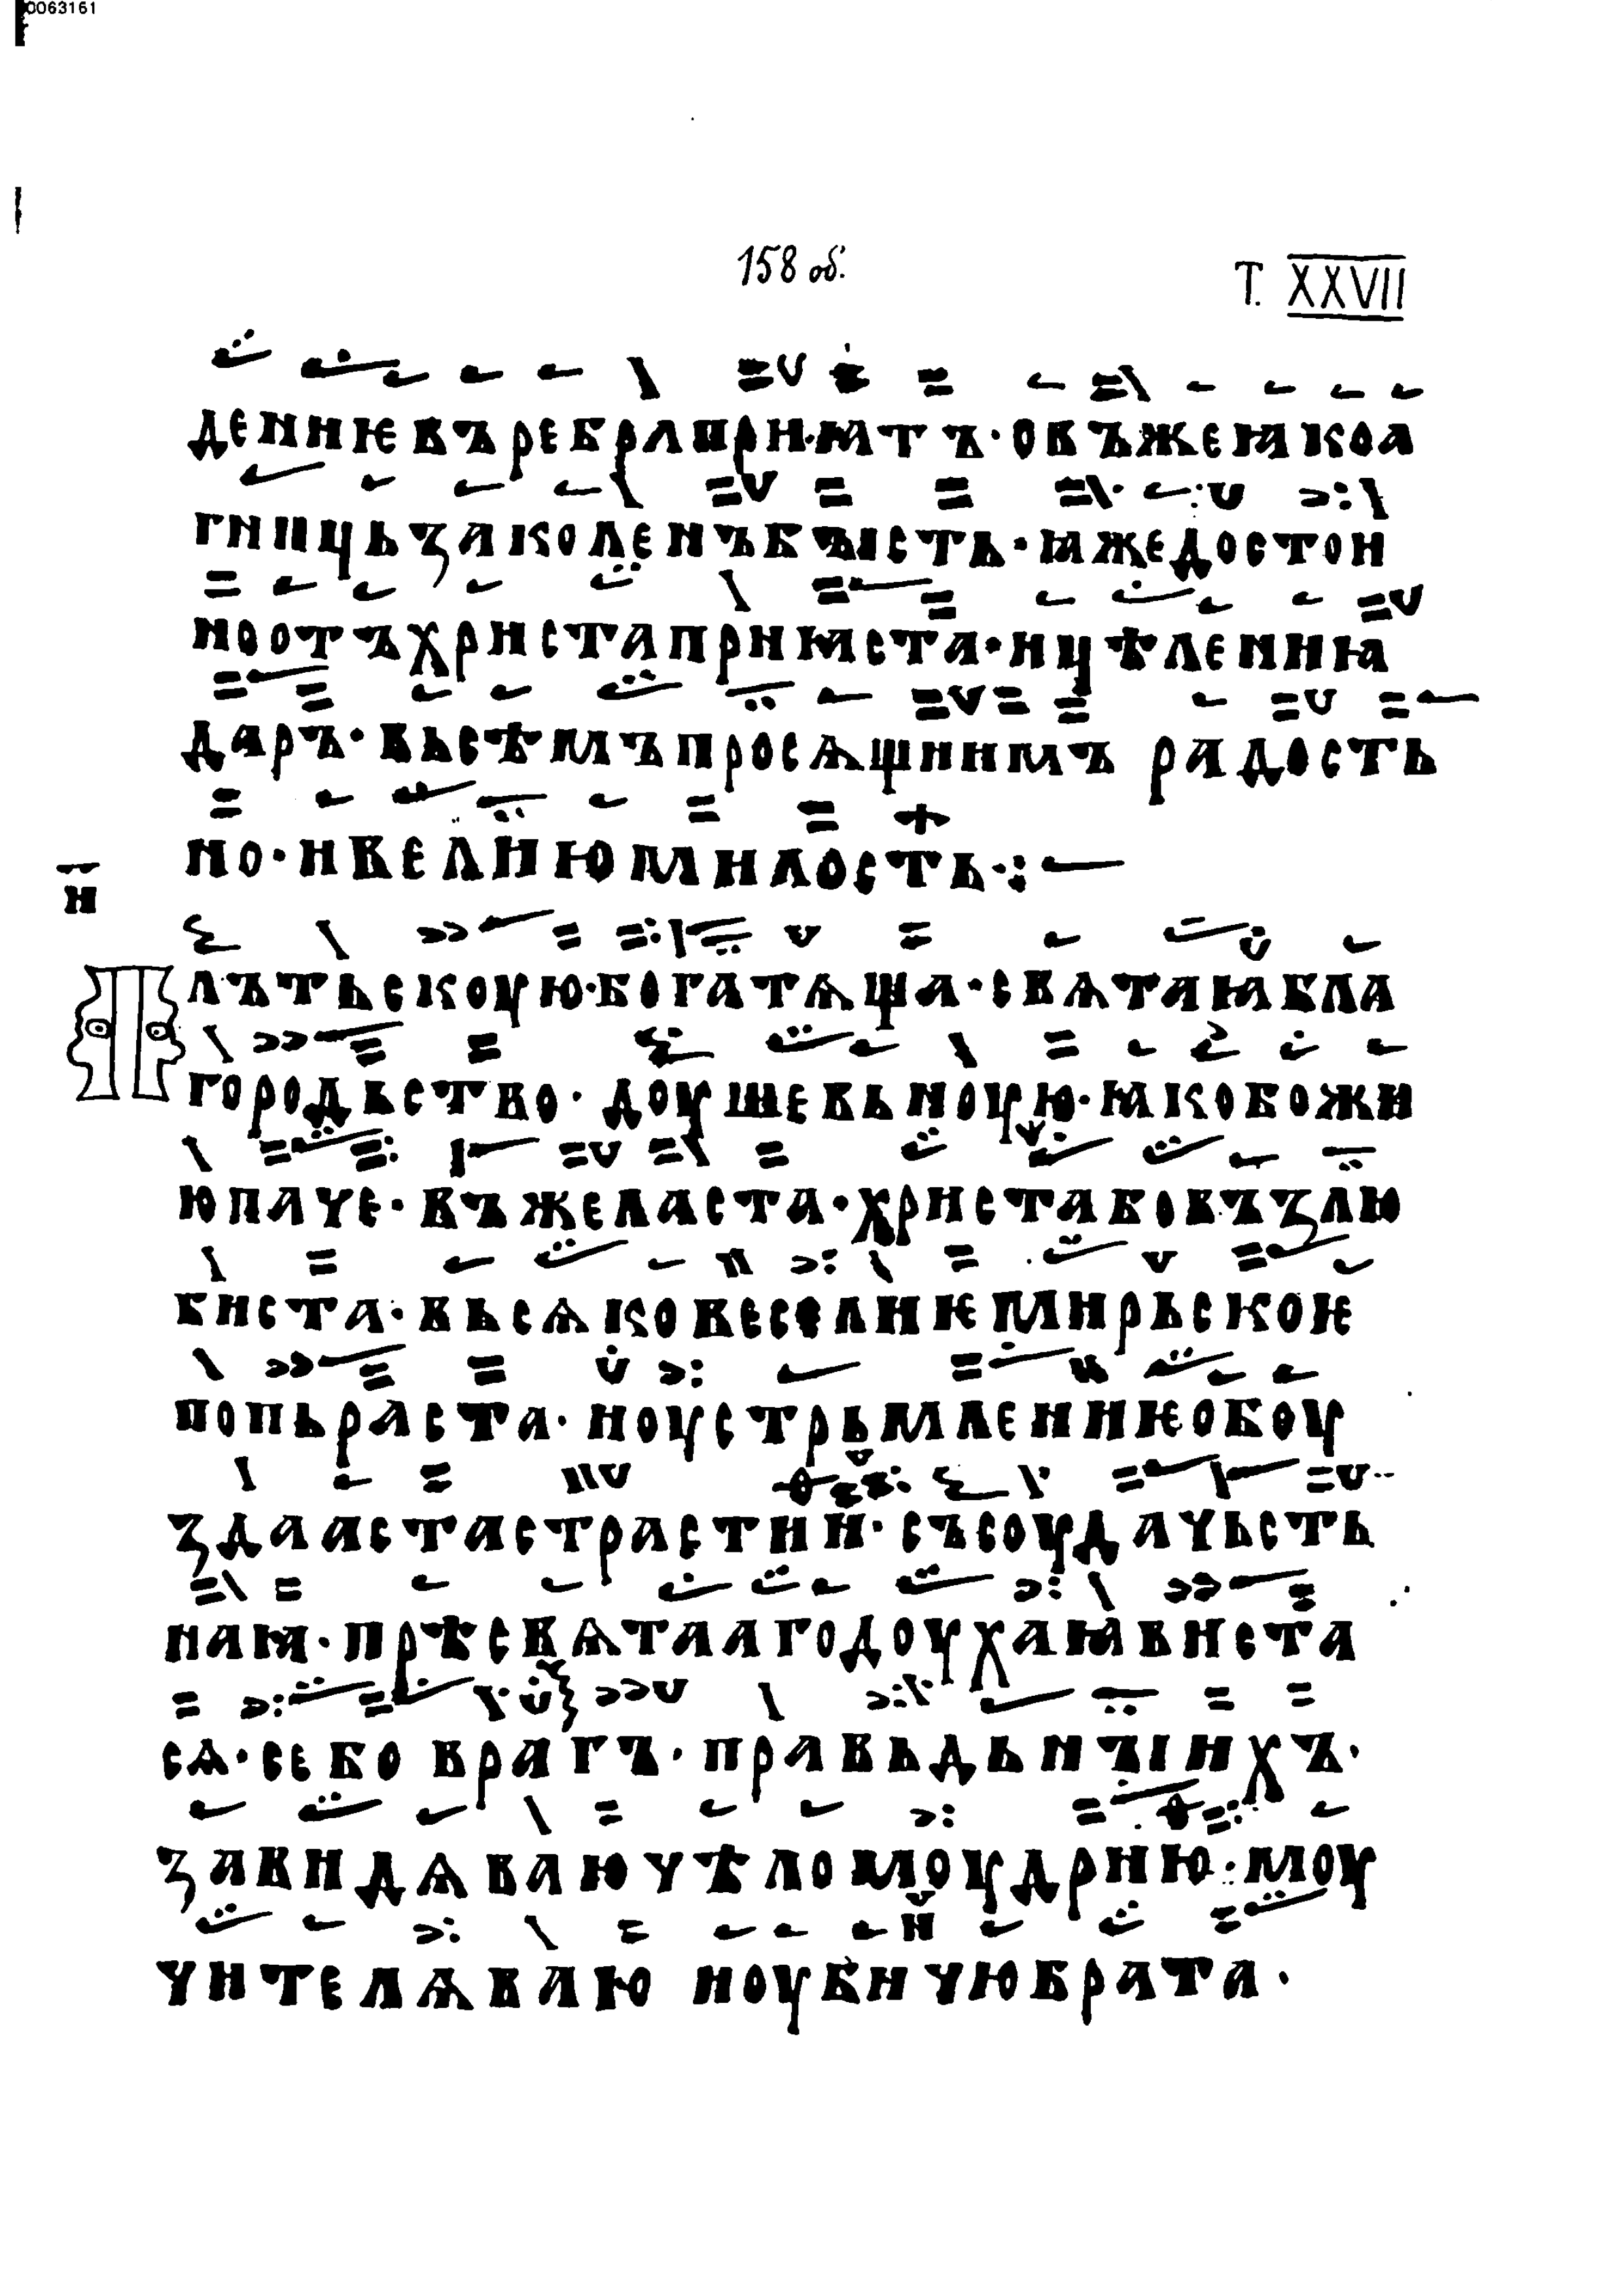 0063161
158 об.
Т. XXVII
дениѥвъребраприꙗтъ·овъжеꙗкоа
гньць заколенъбꙑсть·ꙗжедостои
ноотъхристаприꙗста·ицѣлениꙗ
даръ·вьсѣмъпросѧщиимъ радость
но·ивелиюмилость·:
и
Плътьскоую·богатѧща·свѧтаꙗбла
городьство·доушевьноую·ꙗкобожи
юпаче·въжеласта·христабовъзлю
биста·вьсѧковеселиѥмирьскоѥ
попьраста·ноустрьмлениѥобоу
здаастастрастии·съсоудачьсть
наꙗ·прѣсвѧтаагодоухаꙗвиста
сѧ·себо врагъ·правьдьнъіихъ·
завидѧваючѣломоудрию·моу
чителѧваю ноубичюбрата·